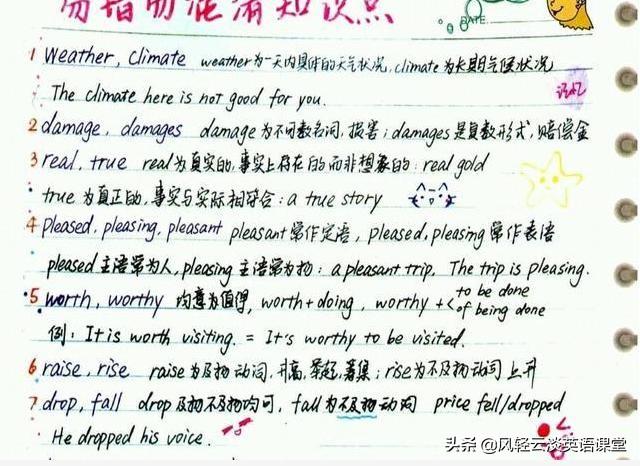 易错易混淆知识点
DATE
1 Weather, climate weather为一天内具体的天气状况, climate为长期气候状况
The climate here is not good for you.
词汇
2 damage, damages damage为不可数名词, 损害; damages是复数形式, 赔偿金
3 real, true real为真实的, 事实上存在的而非想象的: real gold
true为真正的, 事实与实际相符合: a true story
4 pleased, pleasing, pleasant pleasant常作定语, pleased, pleasing常作表语
pleased主语常为人, pleasing主语常为物: a pleasant trip. The trip is pleasing.
5 worth, worthy 均意为值得, worth+doing, worthy + < to be done
of being done
例: It is worth visiting. = It's worthy to be visited.
6 raise, rise raise为及物动词, 升高, 举起, 募集; rise为不及物动词 上升
7 drop, fall drop及物不及物均可, fall为不及物动词 price fell/dropped
He dropped his voice.
头条 @风轻云淡英语课堂